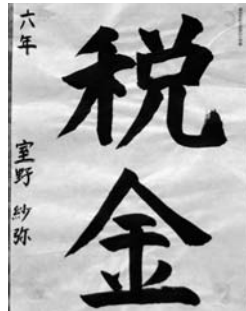 税金
六年 室野 紗弥